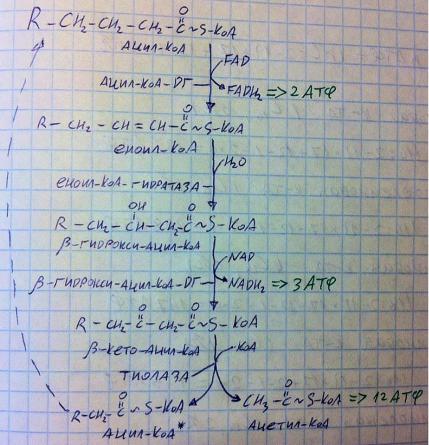 O
R-CH₂-CH₂-CH₂-C~S-KoA
АЦИЛ-КоА
FAD
АЦИЛ-КоА-ДГ
FADH₂ => 2 АТФ
O
R-CH₂-CH=CH-C~S-KoA
ЕНОИЛ-КоА
H₂O
ЕНОИЛ-КоА-ГИДРАТАЗА
OH O
R-CH₂-CH-CH₂-C~S-KoA
β-ГИДРОКСИ-АЦИЛ-КоА
NAD
β-ГИДРОКСИ-АЦИЛ-КоА-ДГ
NADH₂ => 3 АТФ
O O
R-CH₂-C-CH₂-C~S-KoA
β-КЕТО-АЦИЛ-КоА
KoA
ТИОЛАЗА
O O
R-CH₂-C~S-KoA CH₃-C~S-KoA => 12 АТФ
АЦИЛ-КоА* АЦЕТИЛ-КоА